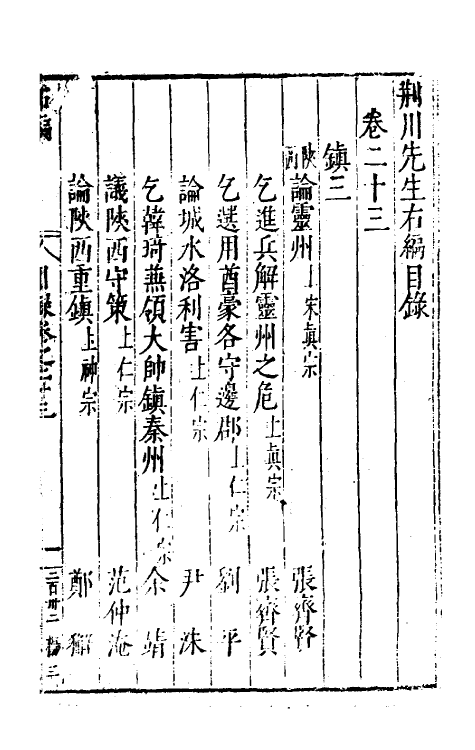 荆川先生右編目錄
卷二十三
鎮三
陝西論靈州上宋真宗 張齊賢
乞進兵解靈州之危上真宗 張齊賢
乞選用酋豪各守邊郡上仁宗 劉平
論城水洛利害上仁宗 尹洙
乞韓琦兼領大帥鎮秦州上仁宗 余靖
議陝西守策上仁宗 范仲淹
論陝西重鎮上神宗 鄭獬
右編
目錄卷之廿三
一